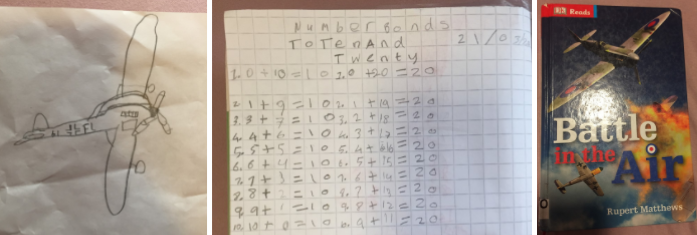 Number Bonds
To Ten And
Twenty
1. 0 + 10 = 10 1. 0 + 20 = 20
2. 1 + 9 = 10 2. 1 + 19 = 20
= 10 3. 2 + 18 = 20
4. 4 + 6 = 10 4. 3 + 17 = 20
5. 5 + 5 = 10 5. 4 + = 20
6. 6 + 4 = 10 5 + 15 = 20
7 + 3 = 10 6 + 14 = 20
8 + = 10 7 + 13 = 20
9 + = 10 8 + 12 = 20
10 + 0 = 10 9 + 11 = 20
DK Reads
Battle
in the
Air
Rupert Matthews